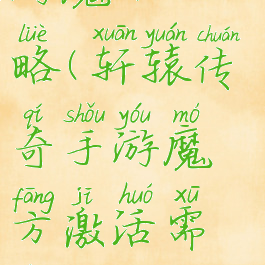 lüè xuān yuán chuán
略(轩辕传
qí shǒu yóu mó
奇手游魔
fāng jī huó xū
方激活需